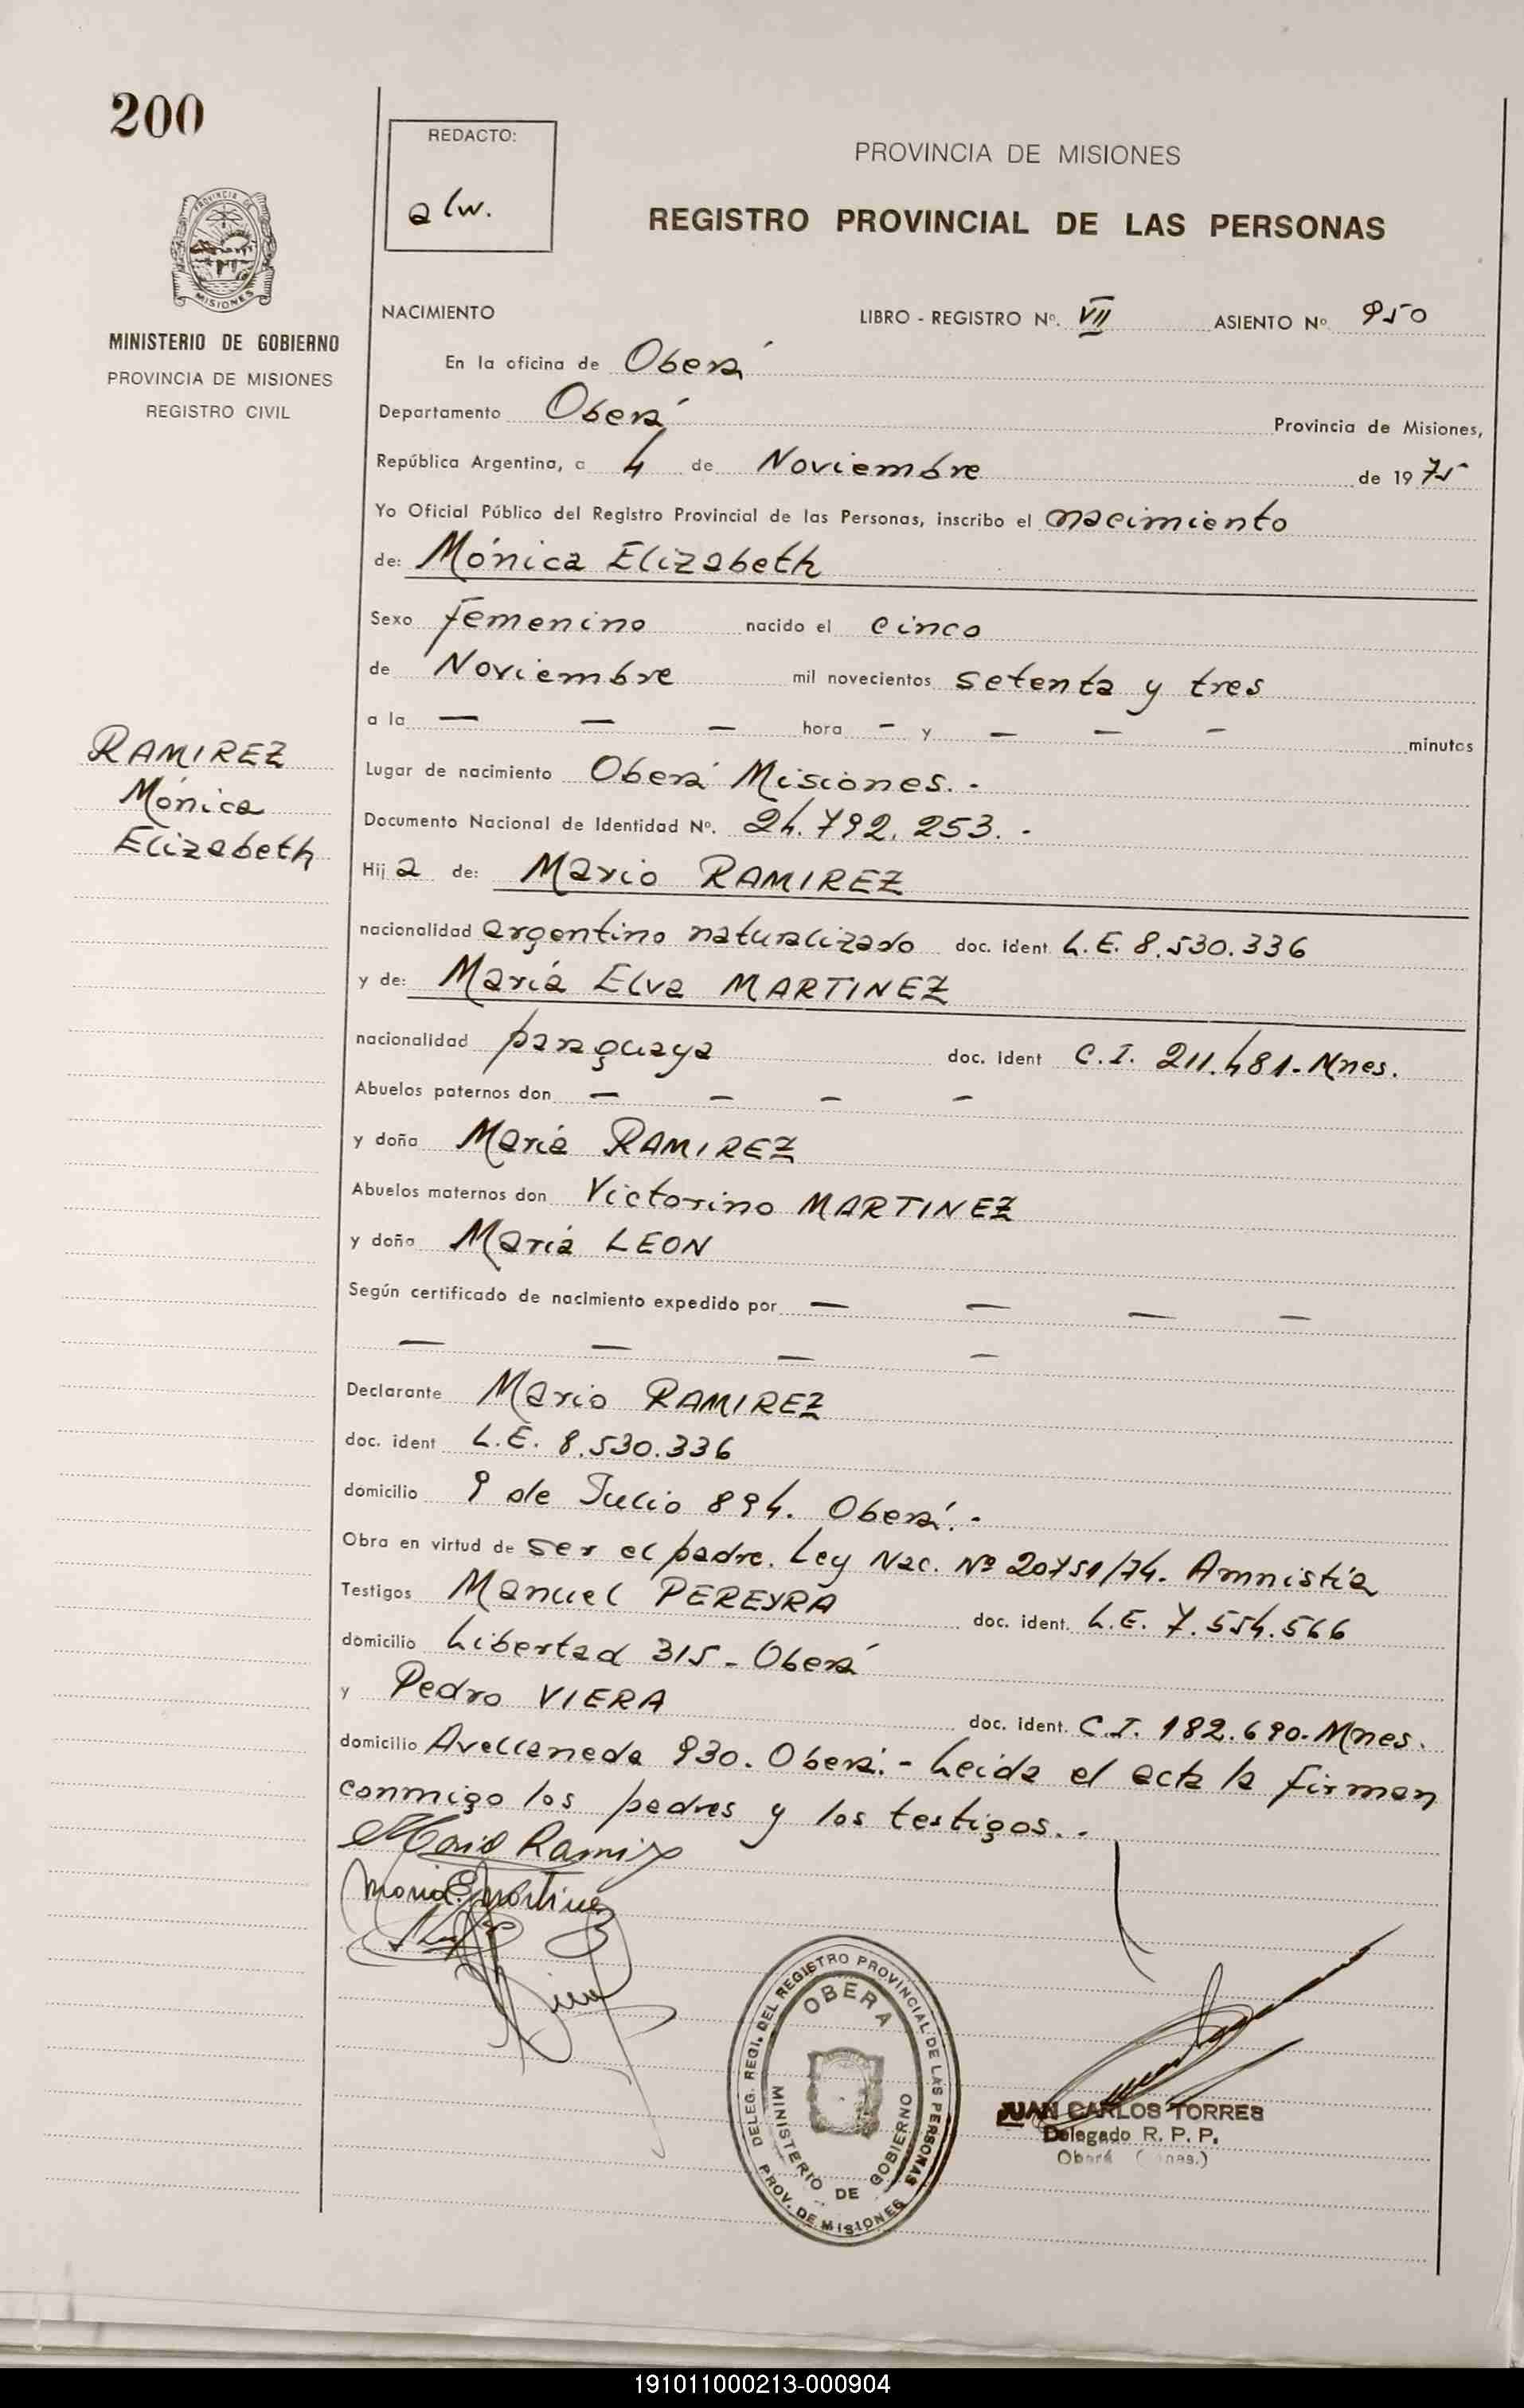 200
REDACTO:
alw.
PROVINCIA DE MISIONES
REGISTRO PROVINCIAL DE LAS PERSONAS
PROVINCIA DE
MISIONES
MINISTERIO DE GOBIERNO
PROVINCIA DE MISIONES
REGISTRO CIVIL
NACIMIENTO LIBRO - REGISTRO Nº. VII ASIENTO Nº 950
En la oficina de Oberá
Departamento Oberá Provincia de Misiones,
República Argentina, a 4 de Noviembre de 1975
Yo Oficial Público del Registro Provincial de las Personas, inscribo el nacimiento
de: Mónica Elizabeth
Sexo femenino nacido el cinco
de Noviembre mil novecientos setenta y tres
a la — — — hora - y — — — minutos
Lugar de nacimiento Oberá Misiones. -
Documento Nacional de Identidad Nº. 24.792.253. -
RAMIREZ
Mónica
Elizabeth
Hija de: Mario RAMIREZ
nacionalidad argentino naturalizado doc. ident. L.E. 8.530.336
y de: María Elva MARTINEZ
nacionalidad paraguaya doc. ident C.I. 211.481-Mnes.
Abuelos paternos don — — — —
y doña María RAMIREZ
Abuelos maternos don Victorino MARTINEZ
y doña María LEON
Según certificado de nacimiento expedido por — — — —
— — — —
Declarante Mario RAMIREZ
doc. ident L.E. 8.530.336
domicilio 9 de Julio 894. Oberá. -
Obra en virtud de ser el padre. Ley Nac. Nº 20751/74. Amnistía
Testigos Manuel PEREYRA doc. ident. L.E. 7.554.566
domicilio Libertad 315 - Oberá
y Pedro VIERA doc. ident. C.I. 182.690-Mnes.
domicilio Avellaneda 930. Oberá. - Leida el acta la firman
conmigo los padres y los testigos. -
Mario Ramirez
Maria E Martinez
DELEG. REGI. DEL REGISTRO PROVINCIAL DE LAS PERSONAS
OBERA
MINISTERIO DE GOBIERNO
PROV. DE MISIONES
JUAN CARLOS TORRES
Delegado R. P. P.
Oberá
191011000213-000904